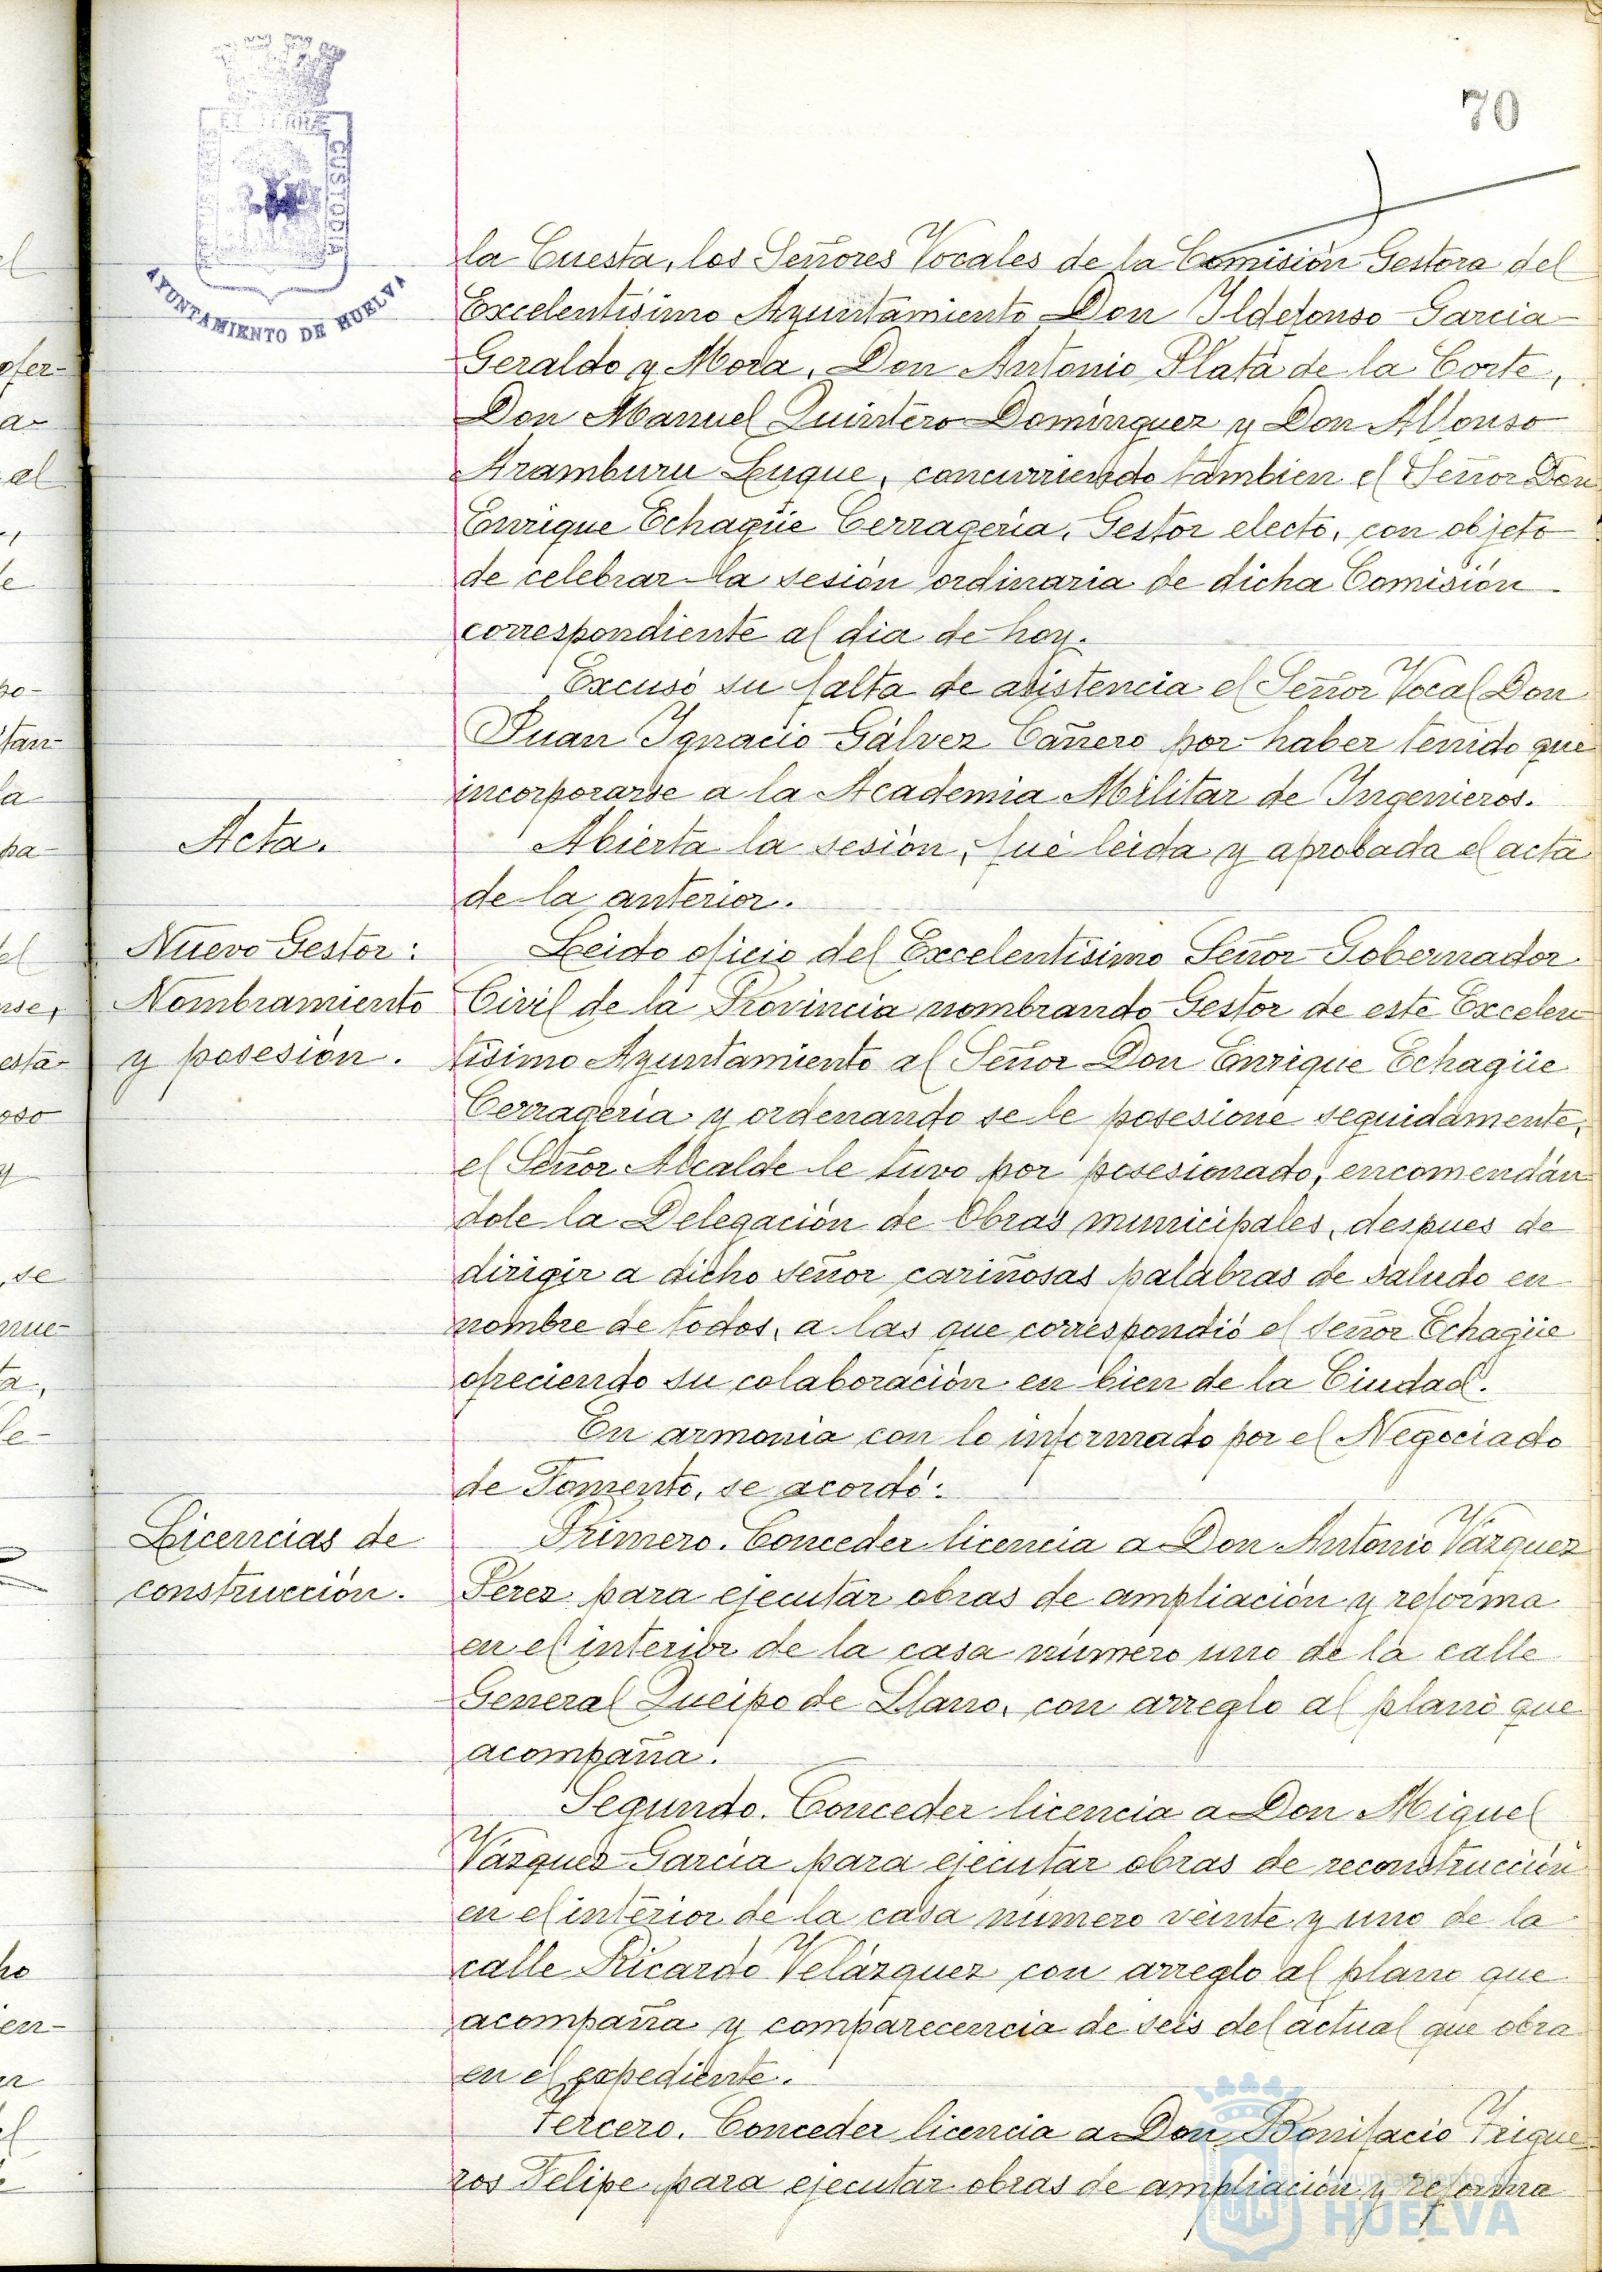 70
ET TERRÆ
CUSTODIA
AYUNTAMIENTO DE HUELVA
la Cuesta, los Señores Vocales de la Comisión Gestora del
Excelentísimo Ayuntamiento Don Ildefonso Garcia-
Geraldo y Mora, Don Antonio Plata de la Corte,
Don Manuel Quintero Domínguez y Don Alfonso
Aramburu Luque, concurriendo tambien el Señor Don
Enrique Echagüe Cerragería, Gestor electo, con objeto
de celebrar la sesión ordinaria de dicha Comisión
correspondiente al dia de hoy.
Excusó su falta de asistencia el Señor Vocal Don
Juan Ignacio Gálvez Cañero por haber tenido que
incorporarse a la Academia Militar de Ingenieros.
Acta.
Abierta la sesión, fué leida y aprobada el acta
de la anterior.
Nuevo Gestor:
Nombramiento
y posesión.
Leido oficio del Excelentísimo Señor Gobernador
Civil de la Provincia nombrando Gestor de este Excelen
tísimo Ayuntamiento al Señor Don Enrique Echagüe
Cerragería y ordenando se le posesione seguidamente,
el Señor Alcalde le tuvo por posesionado, encomendán
dole la Delegación de Obras municipales, despues de
dirigir a dicho señor cariñosas palabras de saludo en
nombre de todos, a las que correspondió el señor Echagüe
ofreciendo su colaboración en bien de la Ciudad.
En armonía con lo informado por el Negociado
de Fomento, se acordó:
Licencias de
construcción.
Primero. Conceder licencia a Don Antonio Vázquez
Pérez para ejecutar obras de ampliación y reforma
en el interior de la casa número uno de la calle
General Queipo de Llano, con arreglo al plano que
acompaña.
Segundo. Conceder licencia a Don Miguel
Vázquez García para ejecutar obras de reconstrucción
en el interior de la casa número veinte y uno de la
calle Ricardo Velázquez con arreglo al plano que
acompaña y comparecencia de seis del actual que obra
en el expediente.
Tercero. Conceder licencia a Don Bonifacio Trigue
ros Felipe para ejecutar obras de ampliación y reforma
Ayuntamiento de
HUELVA